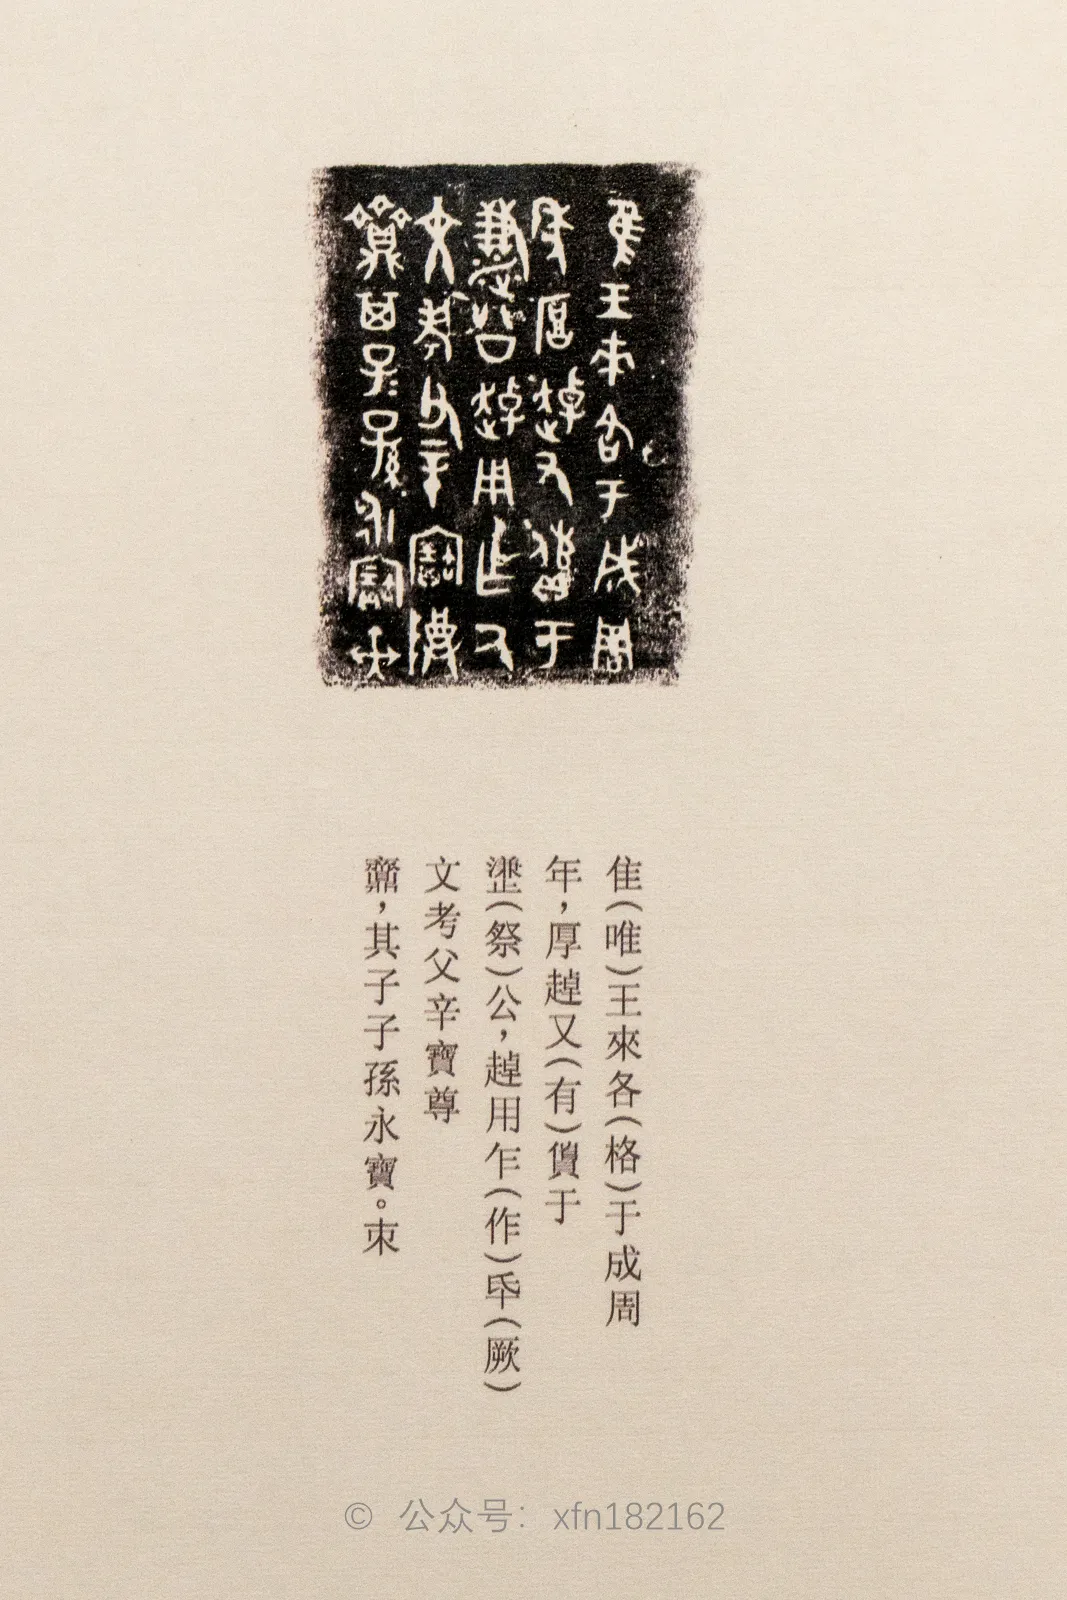 隹（唯）王來各（格）于成周
年，厚趠又（有）償于
𣿅（祭）公，趠用乍（作）氒（厥）
文考父辛寶尊
齍，其子子孫永寶。朿
© 公众号：xfn182162